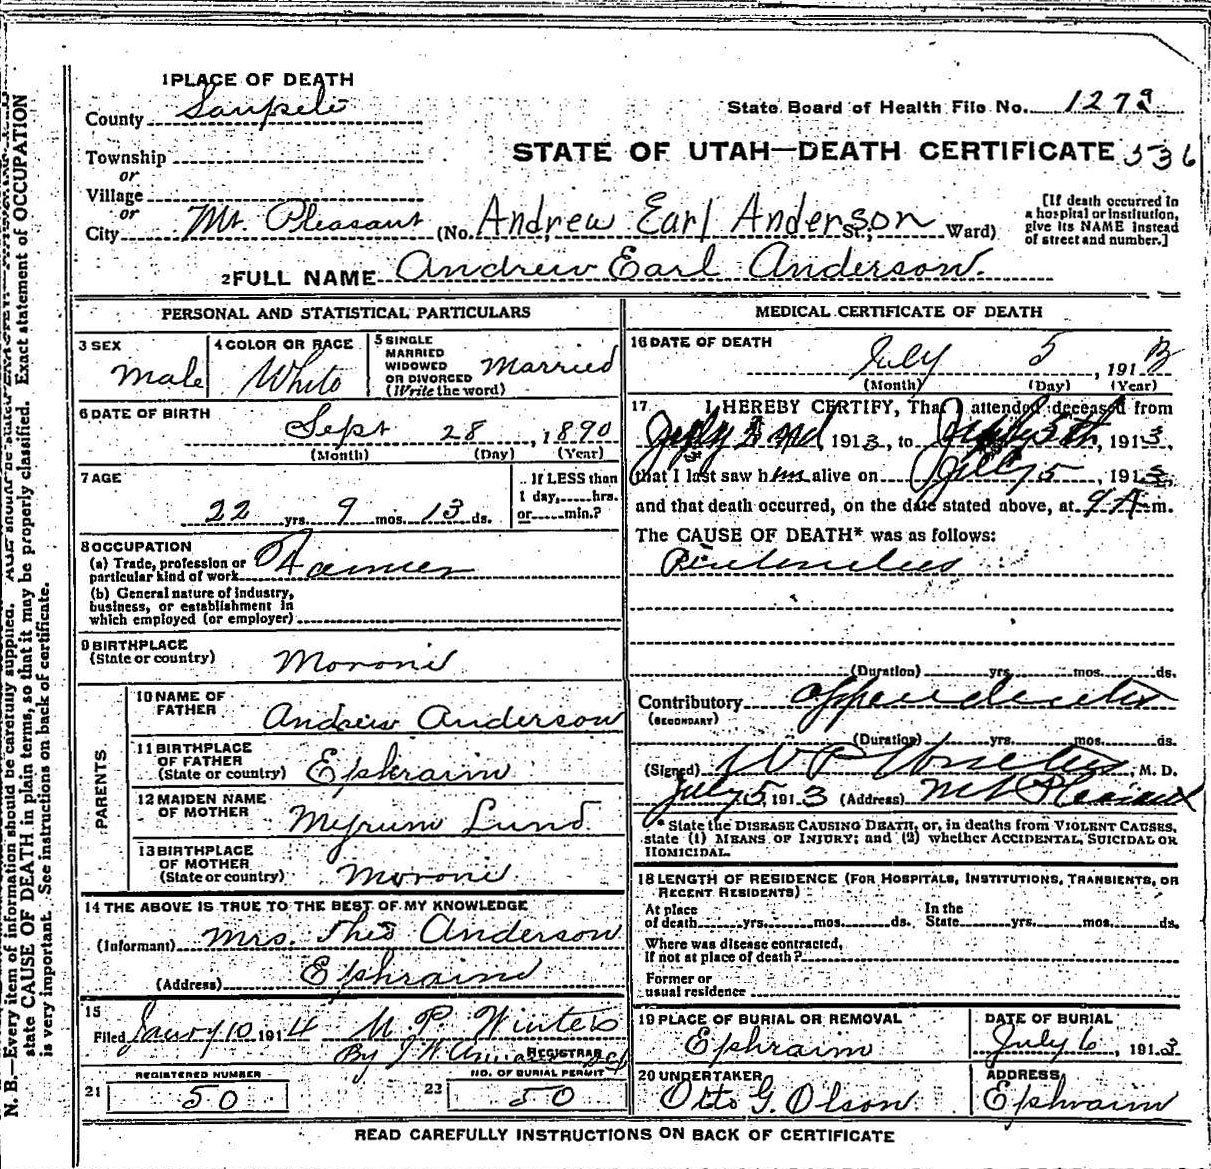 1 PLACE OF DEATH
County Sanpete
State Board of Health File No. 1279
Township
or
Village
or
STATE OF UTAH—DEATH CERTIFICATE 536
City Mt. Pleasant (No. Andrew Earl Anderson St.; Ward)
[If death occurred in a hospital or institution, give its NAME instead of street and number.]
2 FULL NAME Andrew Earl Anderson.
PERSONAL AND STATISTICAL PARTICULARS
3 SEX
Male
4 COLOR OR RACE
White
5 SINGLE
MARRIED
WIDOWED
OR DIVORCED
(Write the word)
Married
6 DATE OF BIRTH
Sept 28, 1890
(Month) (Day) (Year)
7 AGE
22 yrs. 9 mos. 13 ds.
If LESS than
1 day, hrs.
or min.?
8 OCCUPATION
(a) Trade, profession or
particular kind of work Farmer
(b) General nature of industry,
business, or establishment in
which employed (or employer)
9 BIRTHPLACE
(State or country) Moroni
PARENTS
10 NAME OF
FATHER
Andrew Anderson
11 BIRTHPLACE
OF FATHER
(State or country) Ephraim
12 MAIDEN NAME
OF MOTHER
Lund
13 BIRTHPLACE
OF MOTHER
(State or country) Moroni
14 THE ABOVE IS TRUE TO THE BEST OF MY KNOWLEDGE
(Informant) Mrs. Anderson
(Address) Ephraim
15
Filed 10 1914 Winters
By REGISTRAR
REGISTERED NUMBER
21 50
NO. OF BURIAL PERMIT
22 50
MEDICAL CERTIFICATE OF DEATH
16 DATE OF DEATH
July 5, 1913
(Month) (Day) (Year)
17 I HEREBY CERTIFY, That I attended deceased from
July 2nd, 1913, to July 5th, 1913,
that I last saw him alive on July 5, 1913,
and that death occurred, on the date stated above, at 9 A. m.
The CAUSE OF DEATH* was as follows:
(Duration) yrs. mos. ds.
Contributory
(SECONDARY)
(Duration) yrs. mos. ds.
(Signed) W P , M. D.
July 5, 1913 (Address) Mt Pleasant
* State the DISEASE CAUSING DEATH, or, in deaths from VIOLENT CAUSES,
state (1) MEANS OF INJURY; and (2) whether ACCIDENTAL, SUICIDAL OR
HOMICIDAL.
18 LENGTH OF RESIDENCE (FOR HOSPITALS, INSTITUTIONS, TRANSIENTS, OR
RECENT RESIDENTS)
At place
of death yrs. mos. ds.
In the
State yrs. mos. ds.
Where was disease contracted,
if not at place of death?
Former or
usual residence
19 PLACE OF BURIAL OR REMOVAL
Ephraim
DATE OF BURIAL
July 6, 1913
20 UNDERTAKER
Otto G. Olson.
ADDRESS
Ephraim
READ CAREFULLY INSTRUCTIONS ON BACK OF CERTIFICATE
N. B.—Every item of information should be carefully supplied. AGE should be stated EXACTLY.
state CAUSE OF DEATH in plain terms, so that it may be properly classified. Exact statement of OCCUPATION
is very important. See instructions on back of certificate.